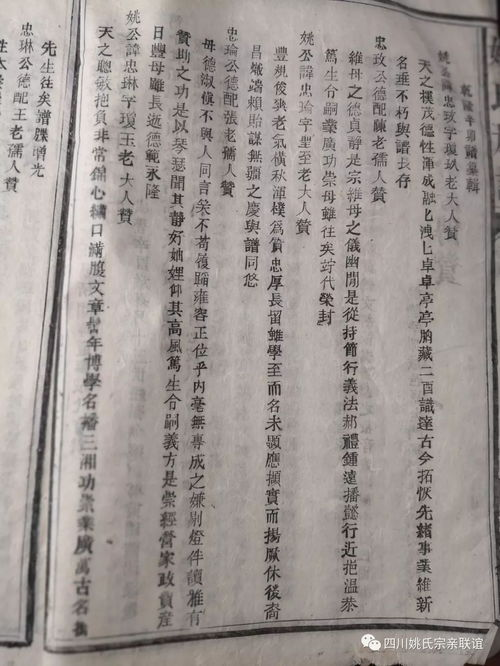 乾隆辛卯贈彙輯
姚公諱忠玫字瓊玖老大人贊
天之樸茂德性渾成融匕洩匕卓卓亭亭胸藏二酉識達古今拓恢先緒事業維新
名垂不朽與譜長存
忠玫公德配陳老孺人贊
維母之德貞靜是宗維母之儀幽閒是從持節行義法郝禮鍾遠播懿行近挹溫恭
篤生令嗣業廣功崇母雖往矣竚代榮封
姚公諱忠瑜字聖至老大人贊
豐規俊爽老氣橫秋渾樸為質忠厚長留雖學至而名未顯應攄實而揚厥休後裔
昌熾端賴貽謀無疆之慶與譜同悠
忠瑜公德配張老孺人贊
母德淑慎不與人同言矣不苟履蹈雍容正位乎內毫無專成之嫌剔燈伴讀雅有
贊助之功是以琴瑟聞其靜好妯娌仰其高風篤生令嗣義方是崇經營家政貲產
日豐母雖長逝德範永隆
姚公諱忠琳字瓊玉老大人贊
天之聰敏抱負非常錦心繡口滿腹文章髫年博學名播三湘功崇業廣萬古名
先生往矣譜牒增光
忠琳公德配王老孺人
四川姚氏宗亲联谊